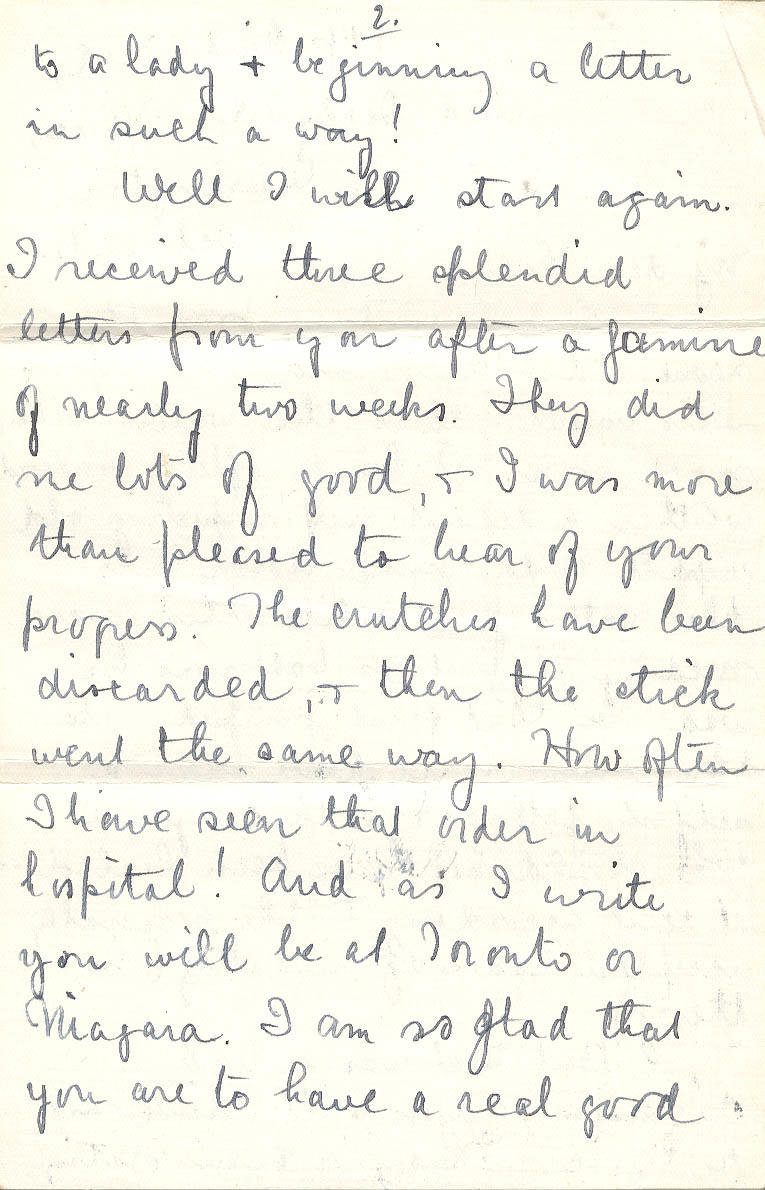 2.
to a lady + beginning a letter
in such a way!
Well I will start again.
I received three splendid
letters from you after a famine
of nearly two weeks. They did
me lots of good, + I was more
than pleased to hear of your
progress. The crutches have been
discarded, + then the stick
went the same way. How often
I have seen that order in
hospital! And as I write
you will be at Toronto or
Niagara. I am so glad that
you are to have a real good